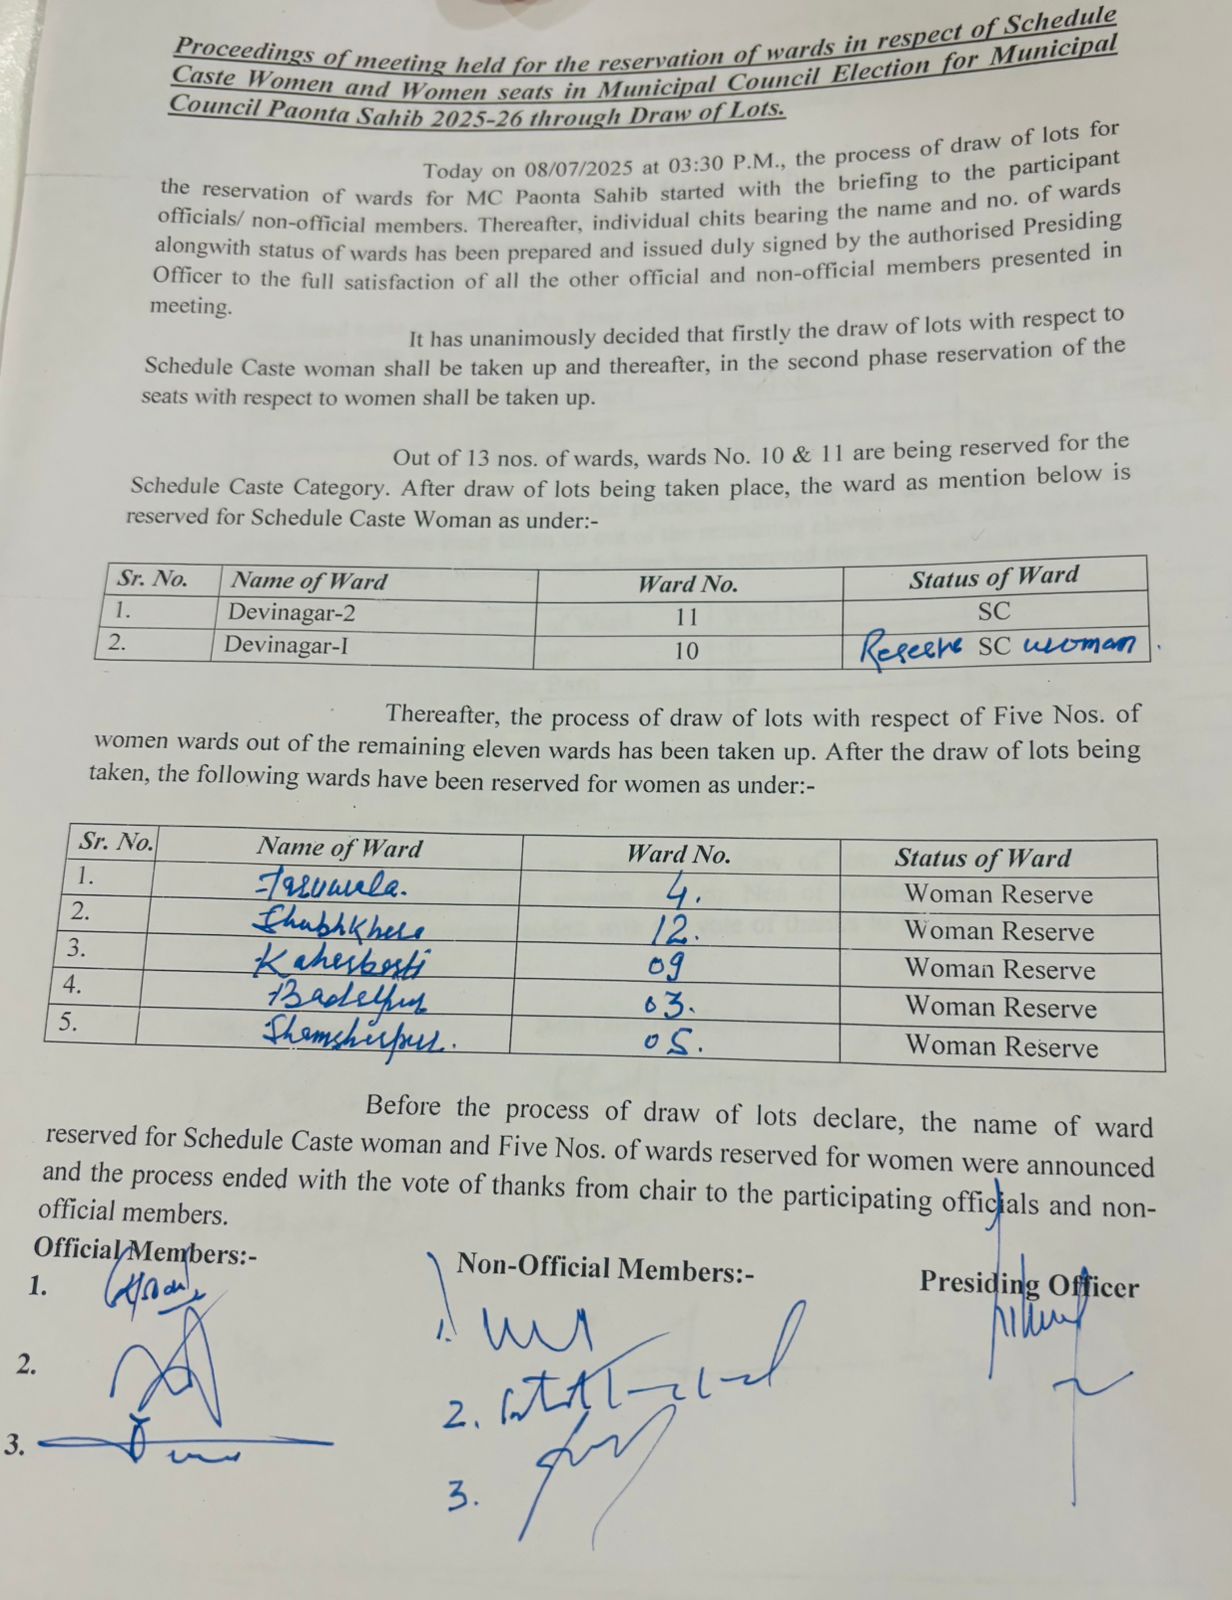 Proceedings of meeting held for the reservation of wards in respect of Schedule
Caste Women and Women seats in Municipal Council Election for Municipal
Council Paonta Sahib 2025-26 through Draw of Lots.
Today on 08/07/2025 at 03:30 P.M., the process of draw of lots for
the reservation of wards for MC Paonta Sahib started with the briefing to the participant
officials/ non-official members. Thereafter, individual chits bearing the name and no. of wards
alongwith status of wards has been prepared and issued duly signed by the authorised Presiding
Officer to the full satisfaction of all the other official and non-official members presented in
meeting.
It has unanimously decided that firstly the draw of lots with respect to
Schedule Caste woman shall be taken up and thereafter, in the second phase reservation of the
seats with respect to women shall be taken up.
Out of 13 nos. of wards, wards No. 10 & 11 are being reserved for the
Schedule Caste Category. After draw of lots being taken place, the ward as mention below is
reserved for Schedule Caste Woman as under:-
Sr. No. Name of Ward Ward No. Status of Ward
1. Devinagar-2 11 SC
2. Devinagar-I 10 Reserve SC woman.
Thereafter, the process of draw of lots with respect of Five Nos. of
women wards out of the remaining eleven wards has been taken up. After the draw of lots being
taken, the following wards have been reserved for women as under:-
Sr. No. Name of Ward Ward No. Status of Ward
1. Taruwala. 4. Woman Reserve
2. Shubhkhera 12. Woman Reserve
3. 09 Woman Reserve
4. Badripur 03. Woman Reserve
5. Shamsherpur. 05. Woman Reserve
Before the process of draw of lots declare, the name of ward
reserved for Schedule Caste woman and Five Nos. of wards reserved for women were announced
and the process ended with the vote of thanks from chair to the participating officials and non-
official members.
Official Members:- Non-Official Members:- Presiding Officer
1. 1.
2. 2.
3. 3.